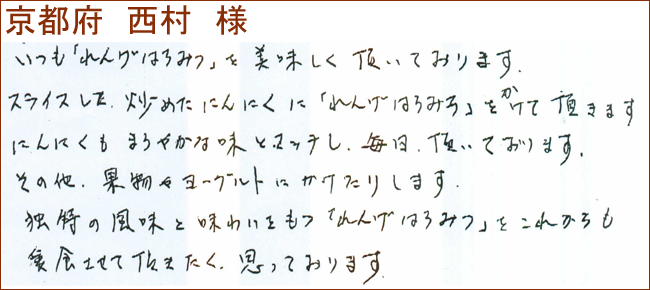 京都府 西村 様
いつも「れんげはちみつ」を美味しく頂いております。
スライスした、炒めたにんにくに「れんげはちみつ」をかけて頂きます
にんにくもまろやかな味とマッチし、毎日、頂いております。
その他、果物やヨーグルトにかけたりします。
独特の風味と味わいをもつ「れんげはちみつ」をこれからも
せて頂きたく、思っております。